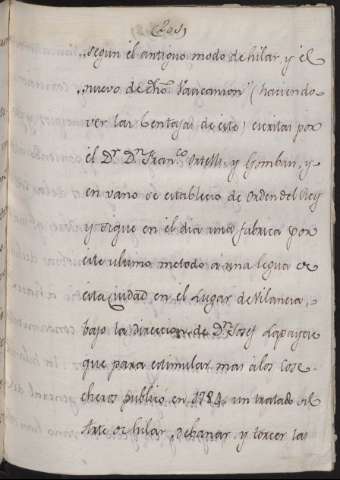 „segun el antiguo modo de hilar, y el
„nuevo de dho. Vaucanson" (haciendo
ver las Ventajas de este) escritas por
el Dr. Dn. Franco. Ortells, y Gombau, y
en vano se establecio de Orden del Rey
y sigue en el dia una fabrica por
este ultimo metodo a una legua de
esta Ciudad en el Lugar de Vilanesa,
bajo la direccion de Dn. Josef Lapayese
que para estimular mas a los Cose-
cheros publicó en 1784 un tratado del
Arte de hilar, debanar, y torcer las